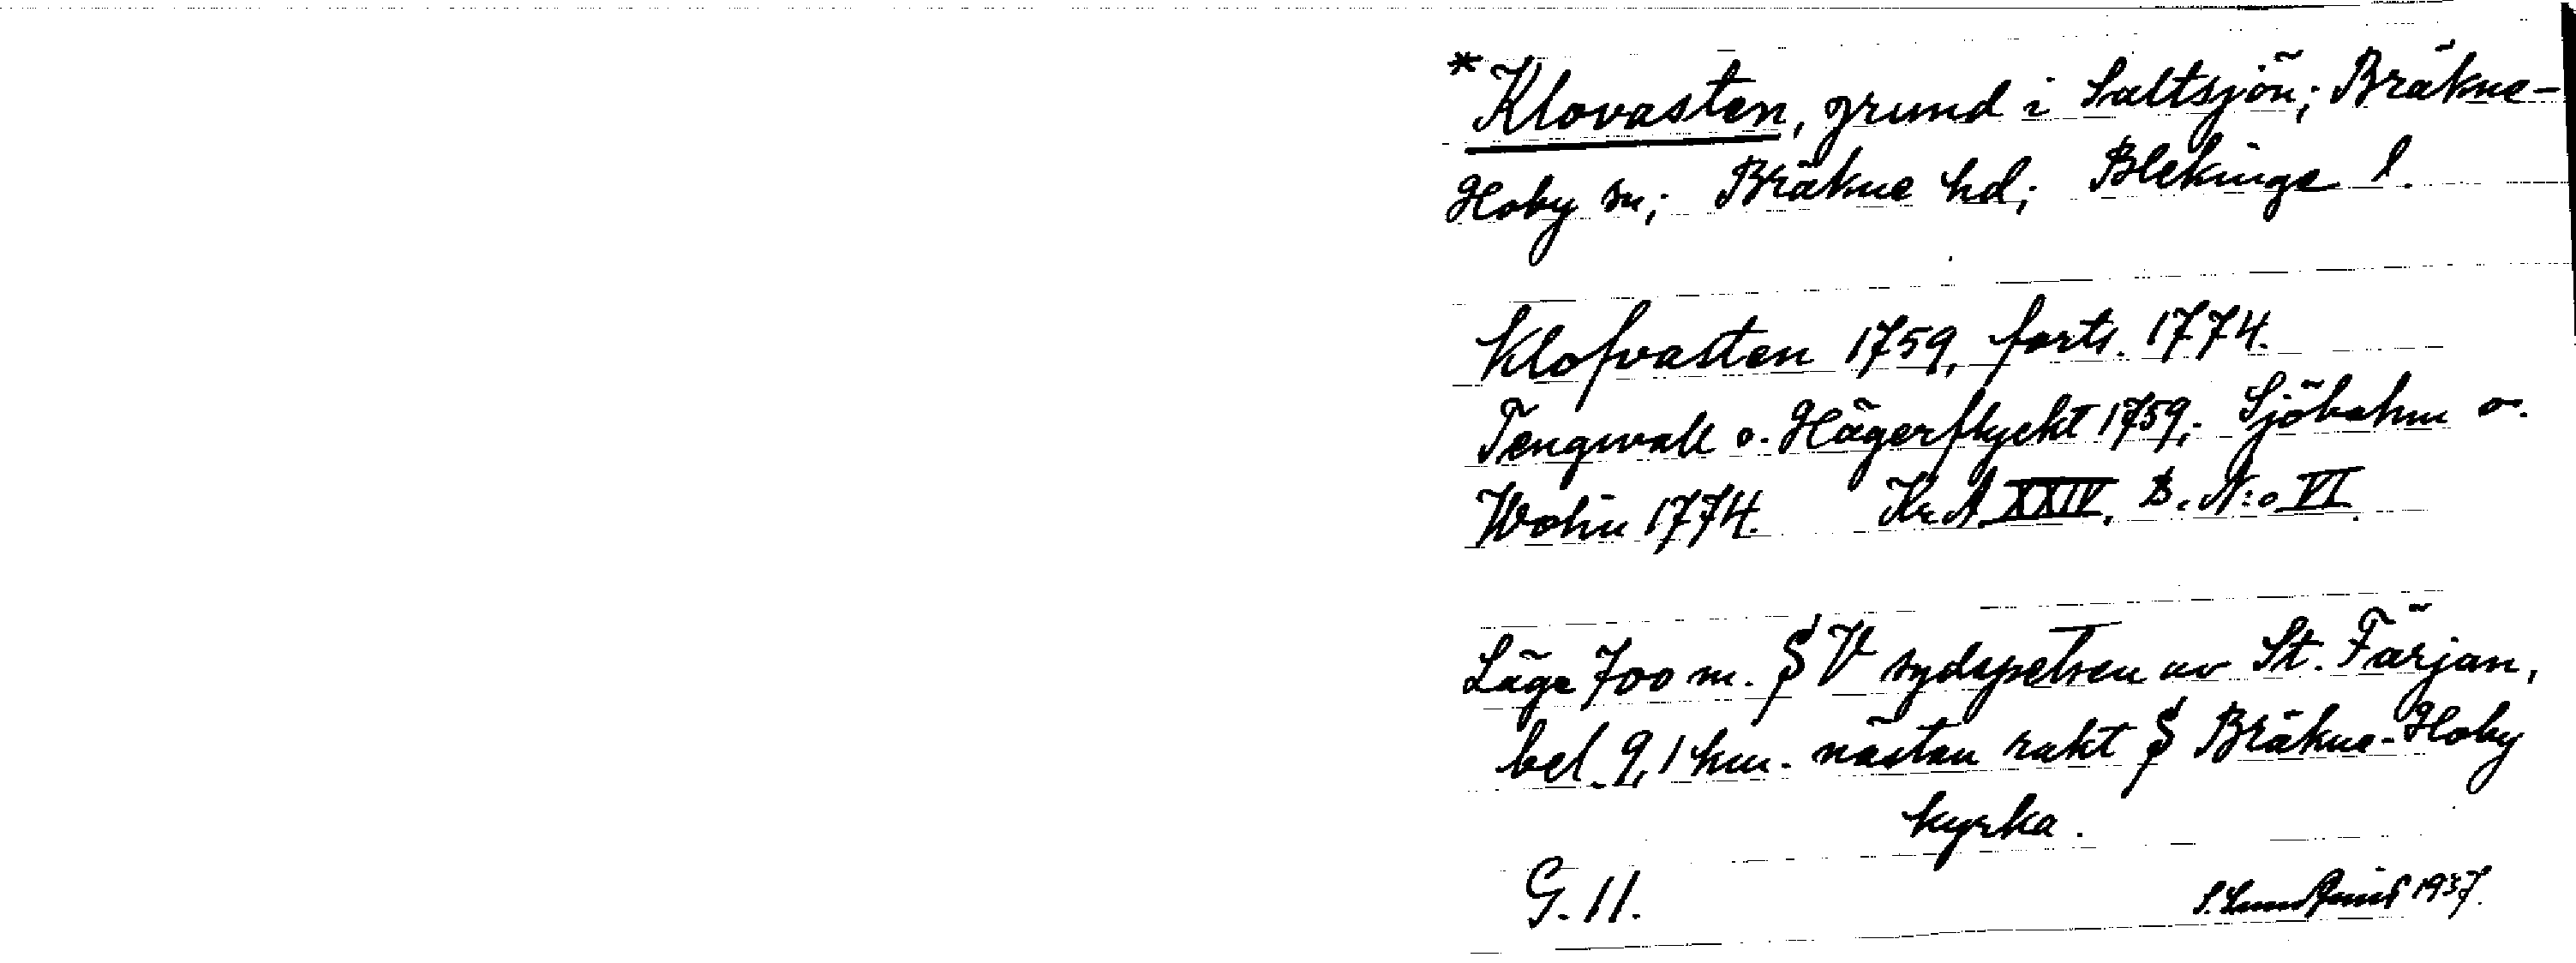 *Klovasten, grund i Saltsjön; Bräkne-
Hoby sn; Bräkne hd; Blekinge l.
Klofvasten 1759, forts. 1774.
Tengwall o. Hägerflyckt 1759; Sjöbohm o.
Wohn 1774. Kr.A. XXIV. B. N:o VI.
Läge 700 m. S V sydspetsen av St. Färjan,
bel. 9,1 km. nästan rakt S Bräkne-Hoby
kyrka.
G. 11.
1937.